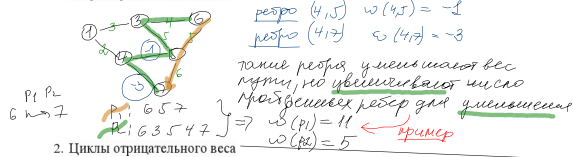 ребро (4,5) ω(4,5) = -1
ребро (4,7) ω(4,7) = -3
такие ребра уменьшают вес
пути, но увеличивают число
пройденных ребер для уменьшения
1 3 6
3 4
2 4 -1 5
5
-3 7 6
P1 P2
6 7
P1: 6 5 7
P2: 6 3 5 4 7
=> ω(p1) = 11
ω(p2) = 5
пример
2. Циклы отрицательного веса